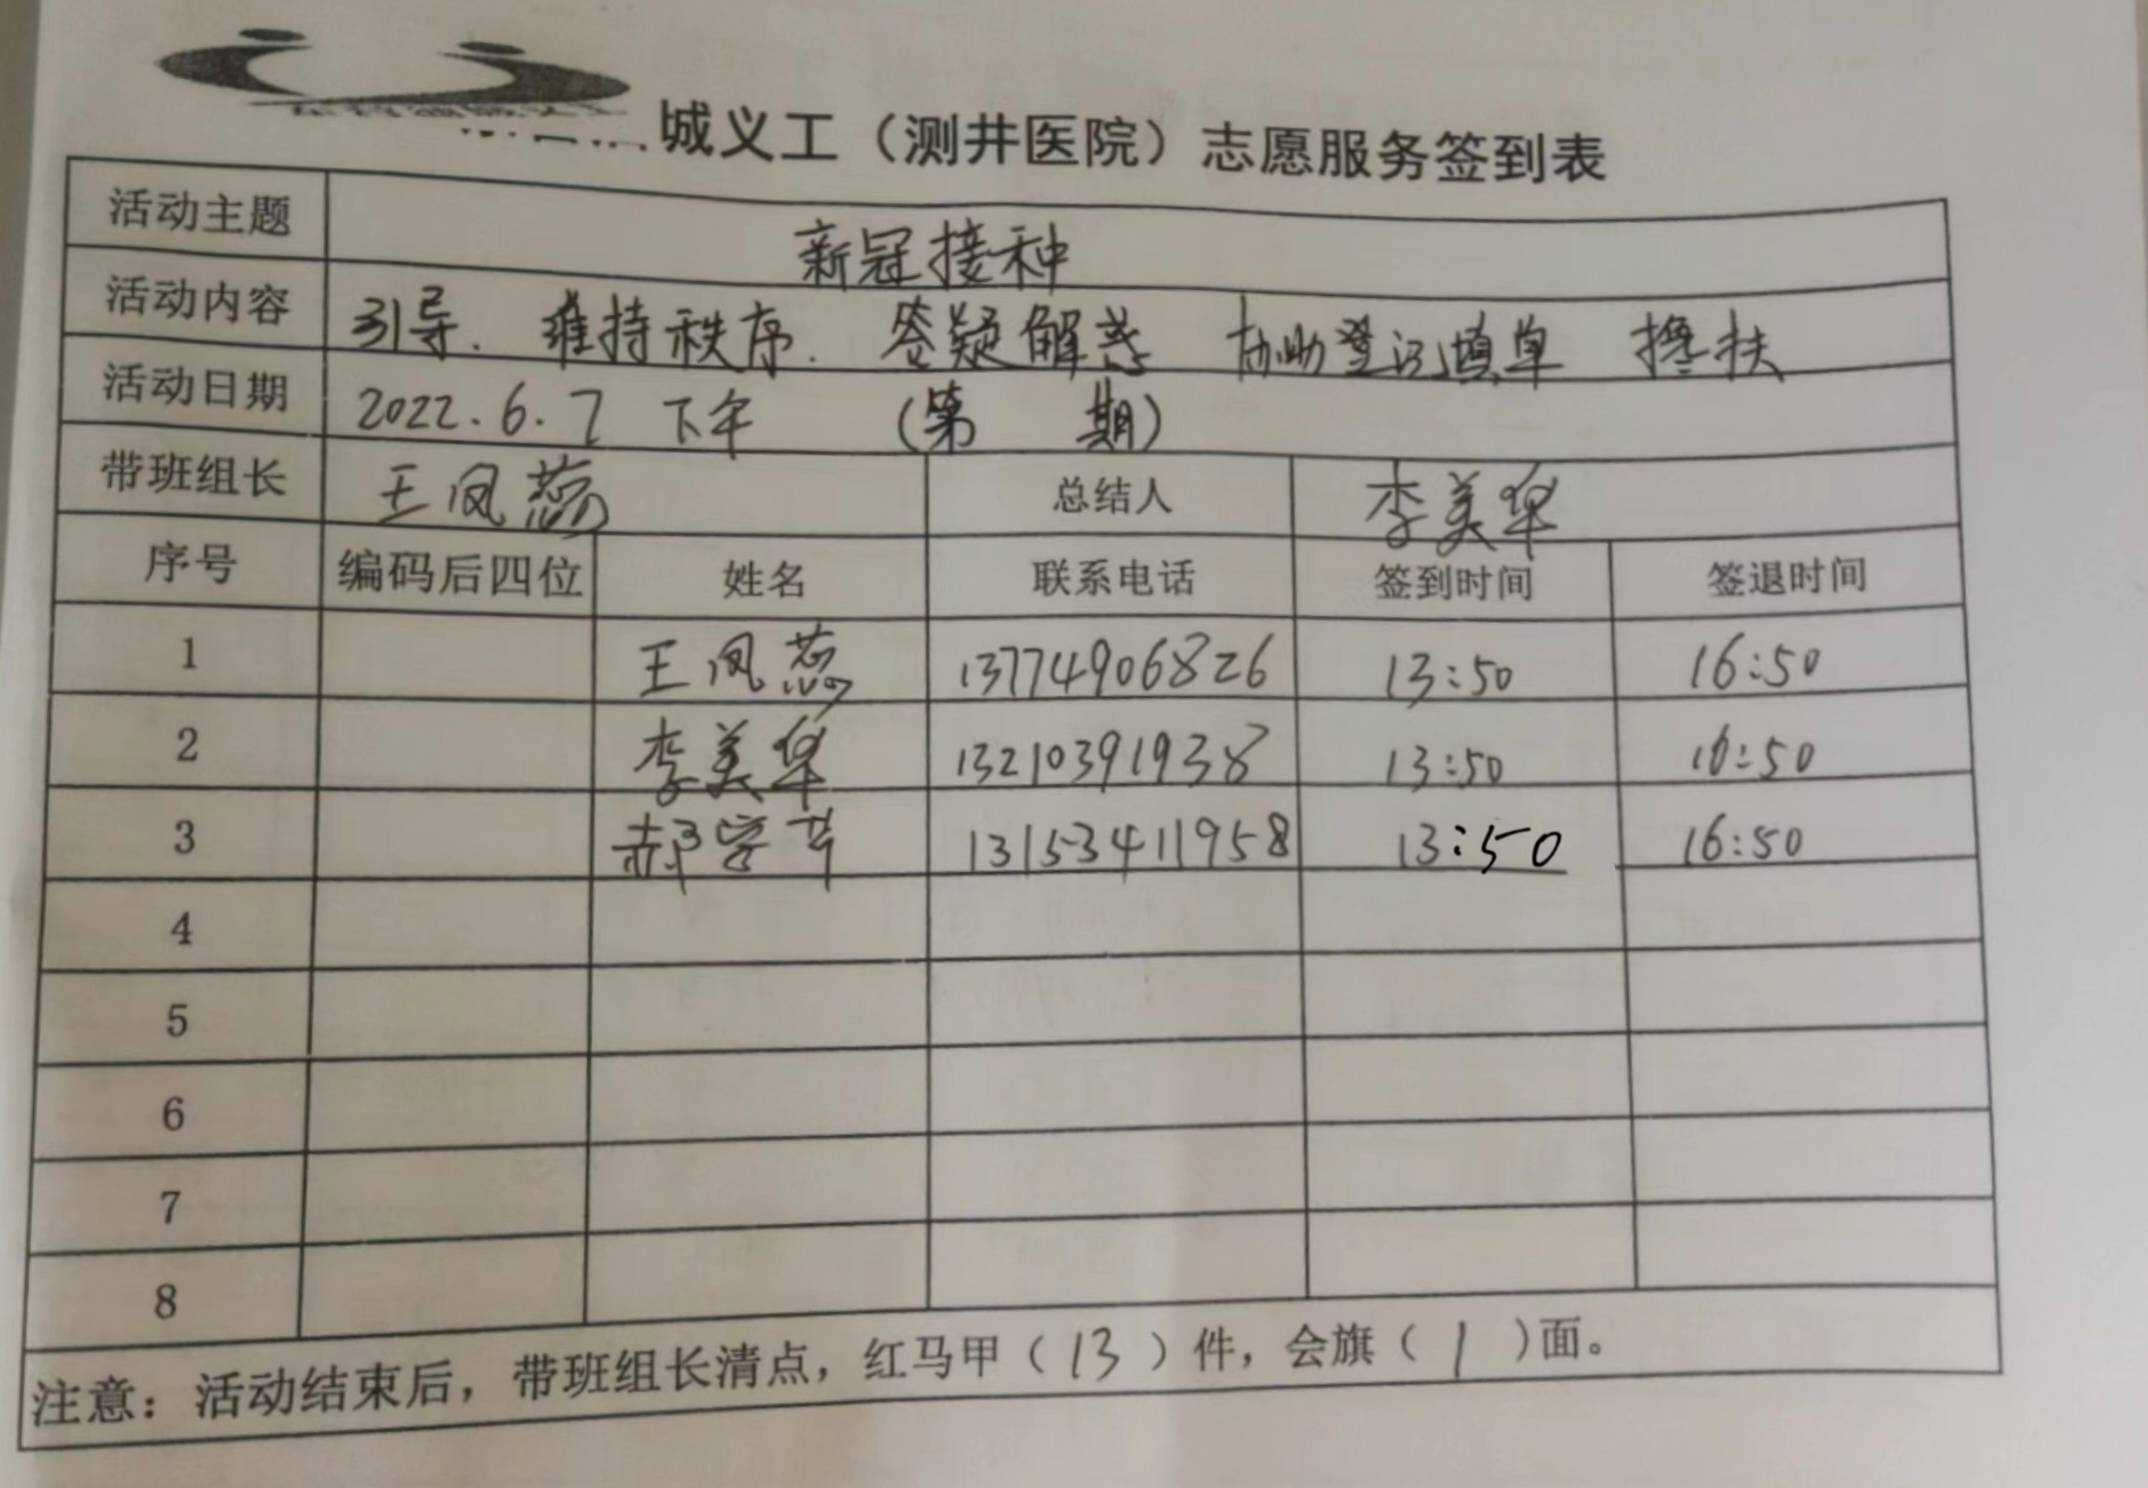 城义工（测井医院）志愿服务签到表
活动主题 新冠接种
活动内容 引导. 维持秩序. 答疑解惑 协助登记填单 搀扶
活动日期 2022.6.7 下午 (第 期)
带班组长 王凤蕊 总结人 李美华
序号 编码后四位 姓名 联系电话 签到时间 签退时间
1 王凤蕊 13774906826 13:50 16:50
2 李美华 13210391938 13:50 16:50
3 郝 13153411958 13:50 16:50
4
5
6
7
8
注意：活动结束后，带班组长清点，红马甲（13）件，会旗（1）面。